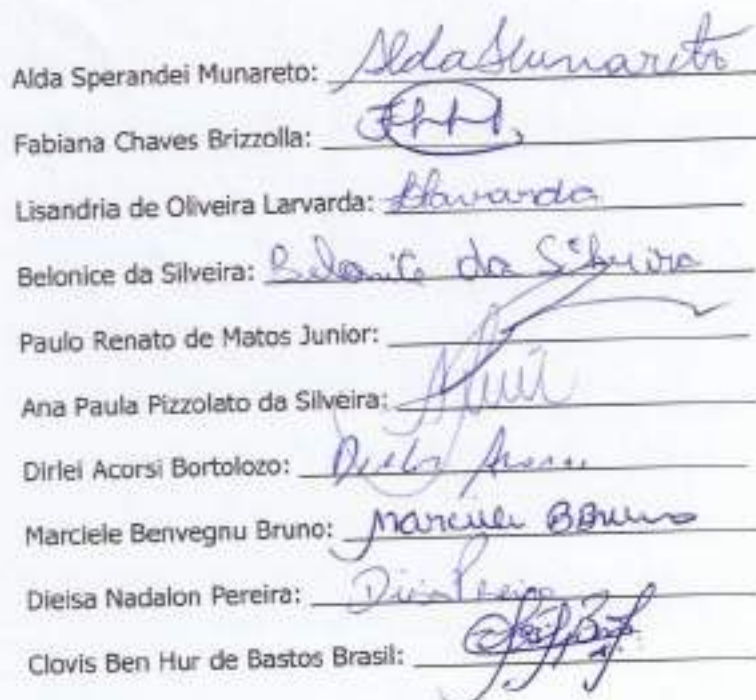 Alda Sperandei Munareto: Alda Munareto
Fabiana Chaves Brizzolla:
Lisandria de Oliveira Larvarda: Lavarda
Belonice da Silveira: Belonice da Silveira
Paulo Renato de Matos Junior:
Ana Paula Pizzolato da Silveira:
Dirlei Acorsi Bortolozo:
Marciele Benvegnu Bruno: Marciele BBruno
Dieisa Nadalon Pereira:
Clovis Ben Hur de Bastos Brasil: